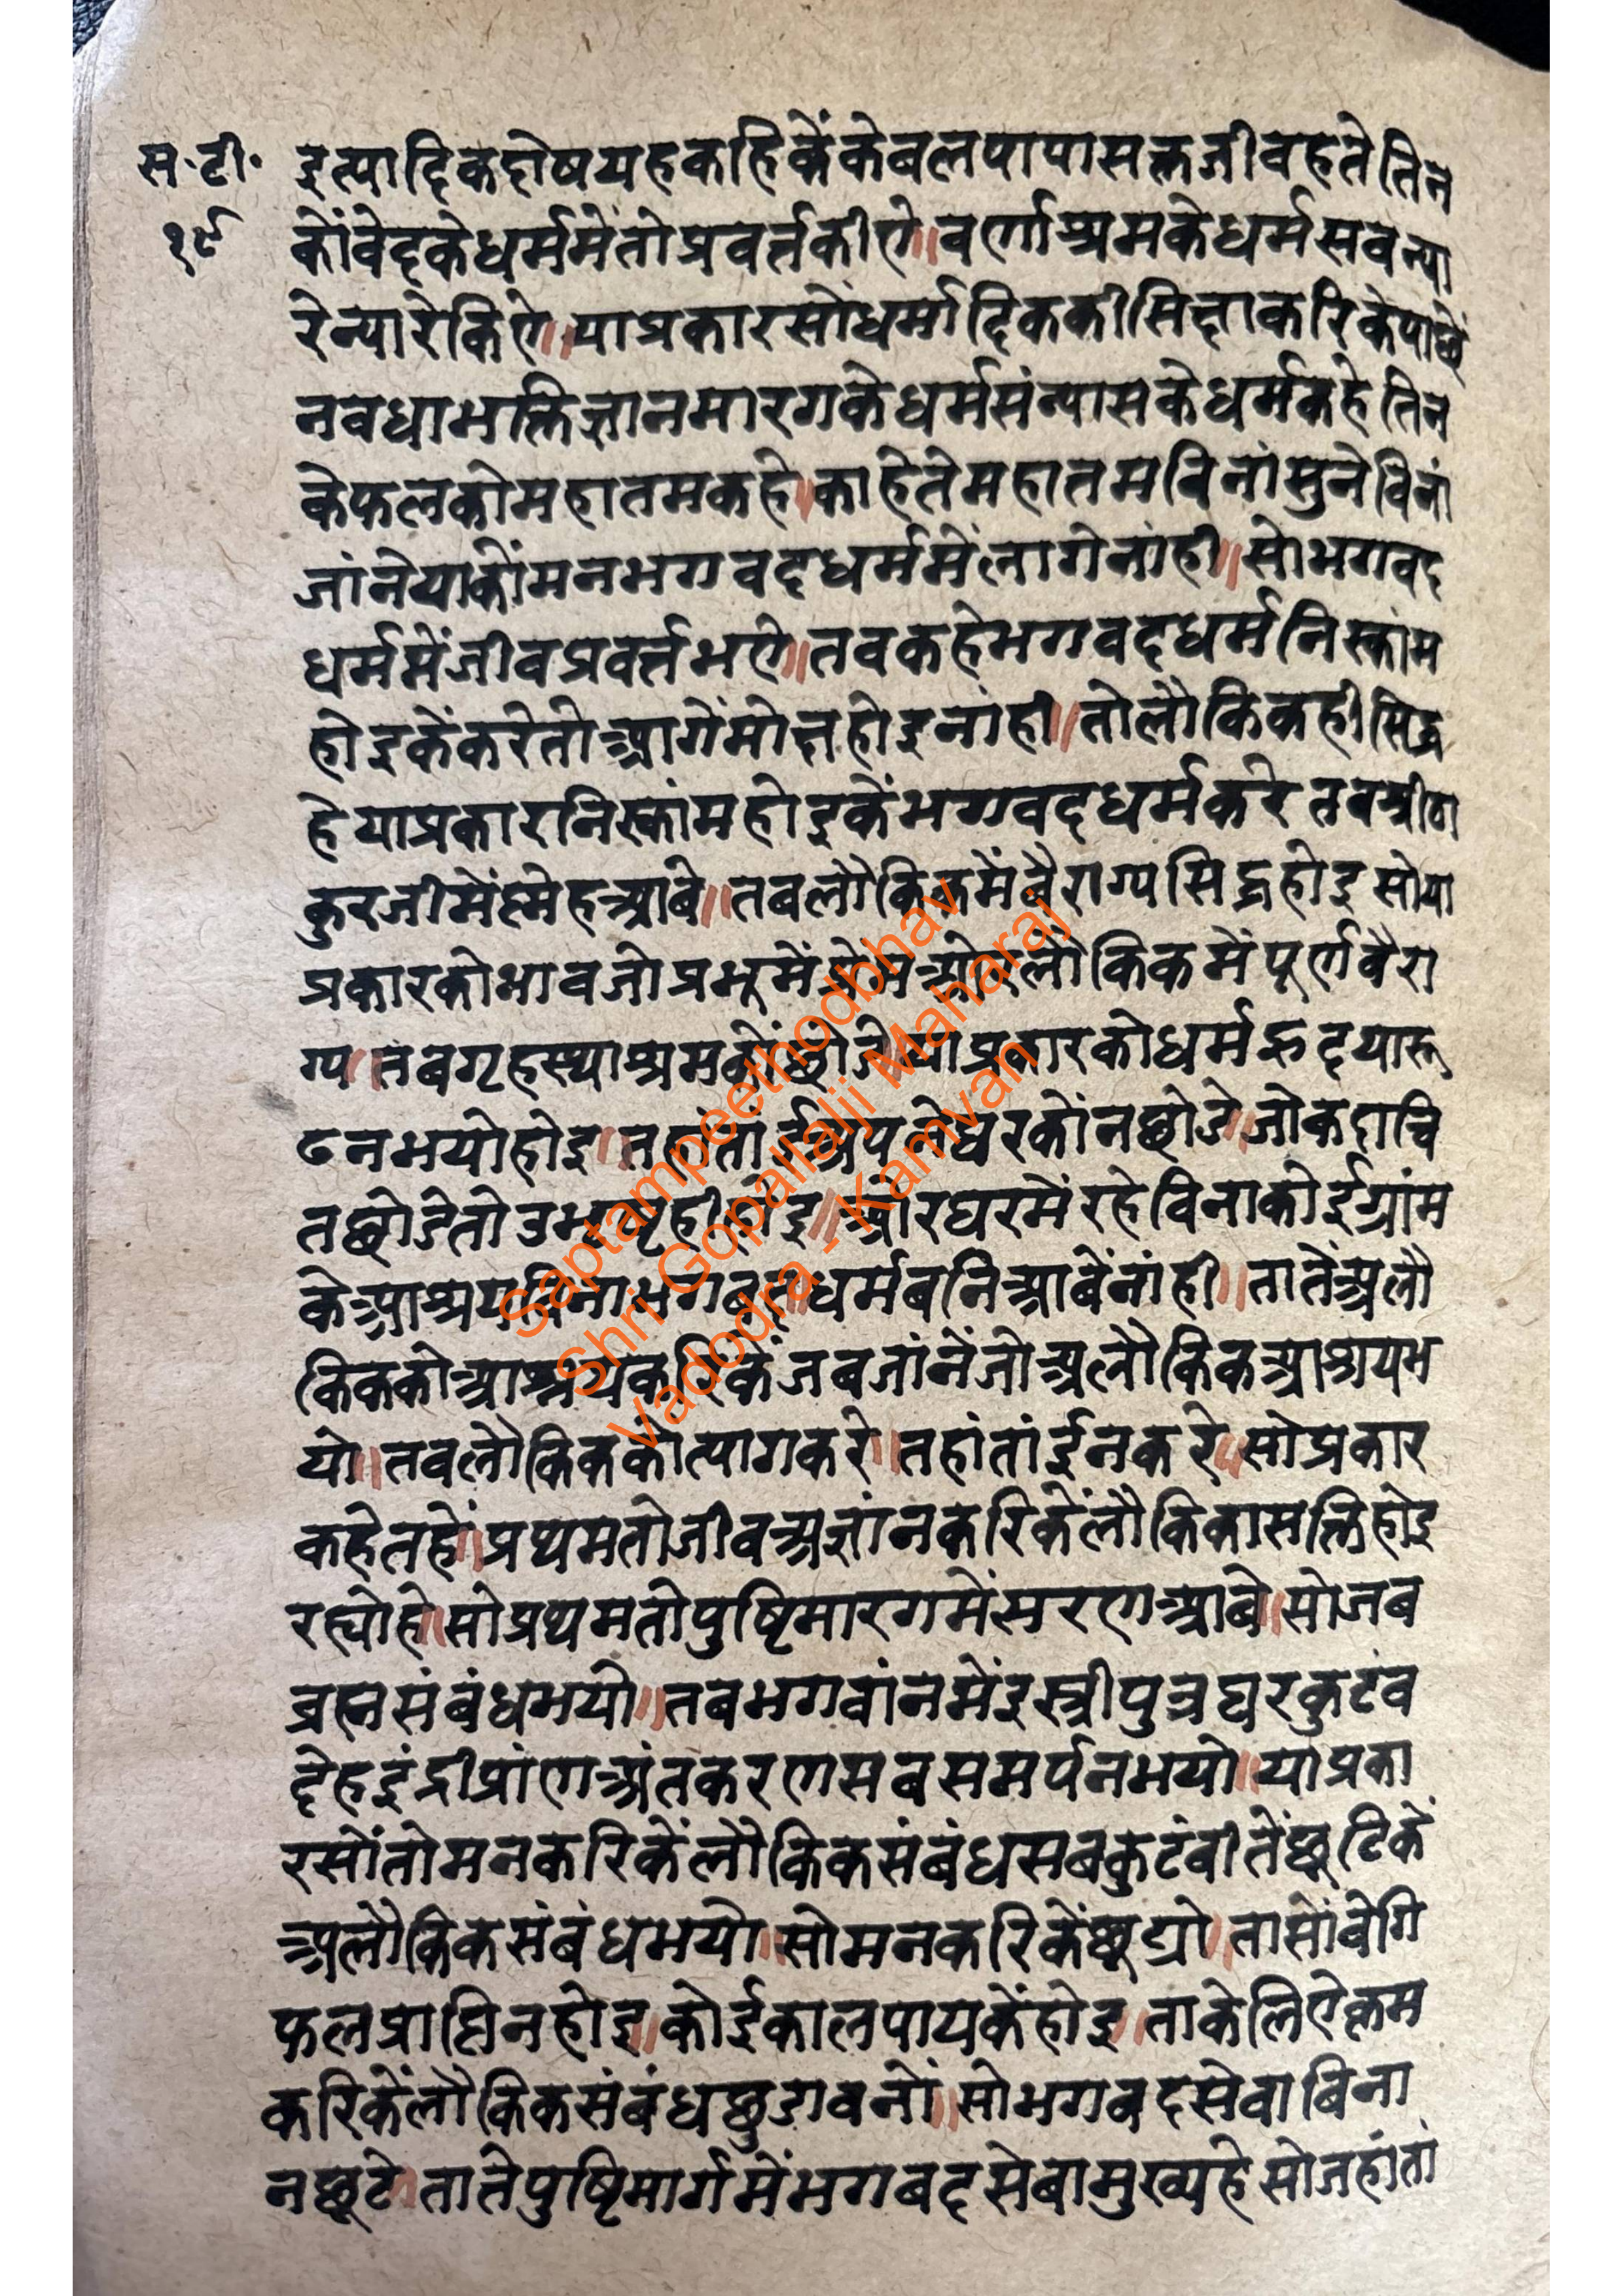 स॰टी॰
१९
इत्यादिकदोषयहकहिकेंकेबलपापासक्तजीवहतेतिन
कोंवेदकेधर्ममेंतोप्रवर्त्तकीऐ॥वर्णाश्रमकेधर्मसवन्या
रेन्यारेकिऐ॥याप्रकारसोंधर्मादिककीसिक्षाकरिकेपाछें
नवधाभक्तिज्ञानमारगकेधर्मसंन्यासकेधर्मकहेतिन
केफलकोमहातमकहे।काहेतेमहातमबिनांसुनेविनां
जांनेयाकोंमनभगवदधर्ममेंलागेनांही॥सोभगवद
धर्ममेंजीवप्रवर्त्तभऐ॥तवकहेभगवदधर्मनिस्कांम
होइकेंकरेतोआगेंमोक्षहोइनांही॥तोलौकिकहीसिद्ध
हेयाप्रकारनिस्कांमहोइकेंभगवदधर्मकरेतबश्रीठा
कुरजीमेंस्नेहआबे॥तबलौकिकमेंवैराग्यसिद्धहोइसोया
प्रकारकोभावजोप्रभूमेंप्रेमओरलोकिकमेंपूर्णवैरा
ग्य॥तबगृहस्थाश्रमकोंछोडे॥याप्रकारकोधर्मह्रदयारू
ढनभयोहोइ॥तहांतांईअपनेघरकोंनछोडे॥जोकदाचि
तछोडेतोउभ्रष्टहीहोइ॥ओरघरमेंरहेविनाकोईग्रांम
केआश्रयविनाभगबतधर्मबनिआबेंनांही॥तातेंअलौ
किककोआश्रयकरिकेंजबजांनेंजोअलौकिकआश्रयभ
यो॥तवलोकिककोत्यागकरे॥तहांतांईनकरे॥सोप्रकार
कहेतहें॥प्रथमतोजीवअज्ञांनकरिकेंलौकिकासक्तिहोइ
रह्योहे॥सोप्रथमतोपुष्टिमारगमेंसरणआबे॥सोजब
ब्रह्मसंबंधभयो॥तबभगवांनमेंइस्त्रीपुत्रघरकुटंव
देहइंद्रीप्रांणअंतकरणसबसमर्पनभयो॥याप्रका
रसोंतोमनकरिकेंलौकिकसंबंधसबकुटंबीतेंछूटिकें
अलौकिकसंबंधभयो॥सोमनकरिकेंछूट्यो॥तासोंवेगि
फलप्राप्तिनहोइ॥कोईकालपायकेंहोइ॥ताकेलिऐक्रम
करिकेंलौकिकसंबंधछुडावनों॥सोभगवदसेवाबिना
नछूटे॥तातेपुष्टिमार्गमेंभगबदसेबामुख्यहेसोजहांतां
Saptampeethodbhav
Shri Gopallalji Maharaj
Vadodra - Kamvan